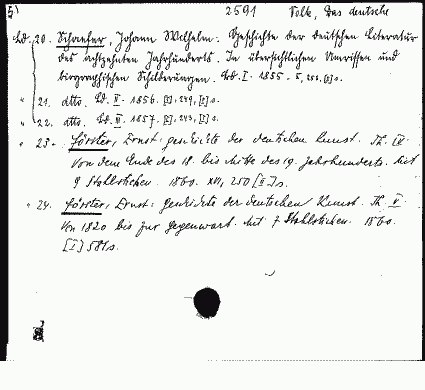 5.) 2591 Volk, Das deutsche
Bd. 20. Schaefer, Johann Wilhelm. Geschichte der deutschen Literatur
des achtzehnten Jahrhunderts. In übersichtlichen Umrissen und
biographischen Schilderungen. Bd. I. 1855. s.
" 21. dtto. Bd. II. 1856. [I], 249, [I] s.
" 22. dtto. Bd. III. 1857. [I], 243, [I] s.
" 23. Förster, Ernst: Geschichte der deutschen Kunst. Th. IV.
Von dem Ende des 18. bis Mitte des 19. Jahrhunderts. Mit
9 Stahlstichen. 1860. XVI, 250 [II] s.
" 24. Förster, Ernst: Geschichte der deutschen Kunst. Th. V.
Von 1820 bis zur Gegenwart. Mit 7 Stahlstichen. 1860.
[I] 581 s.